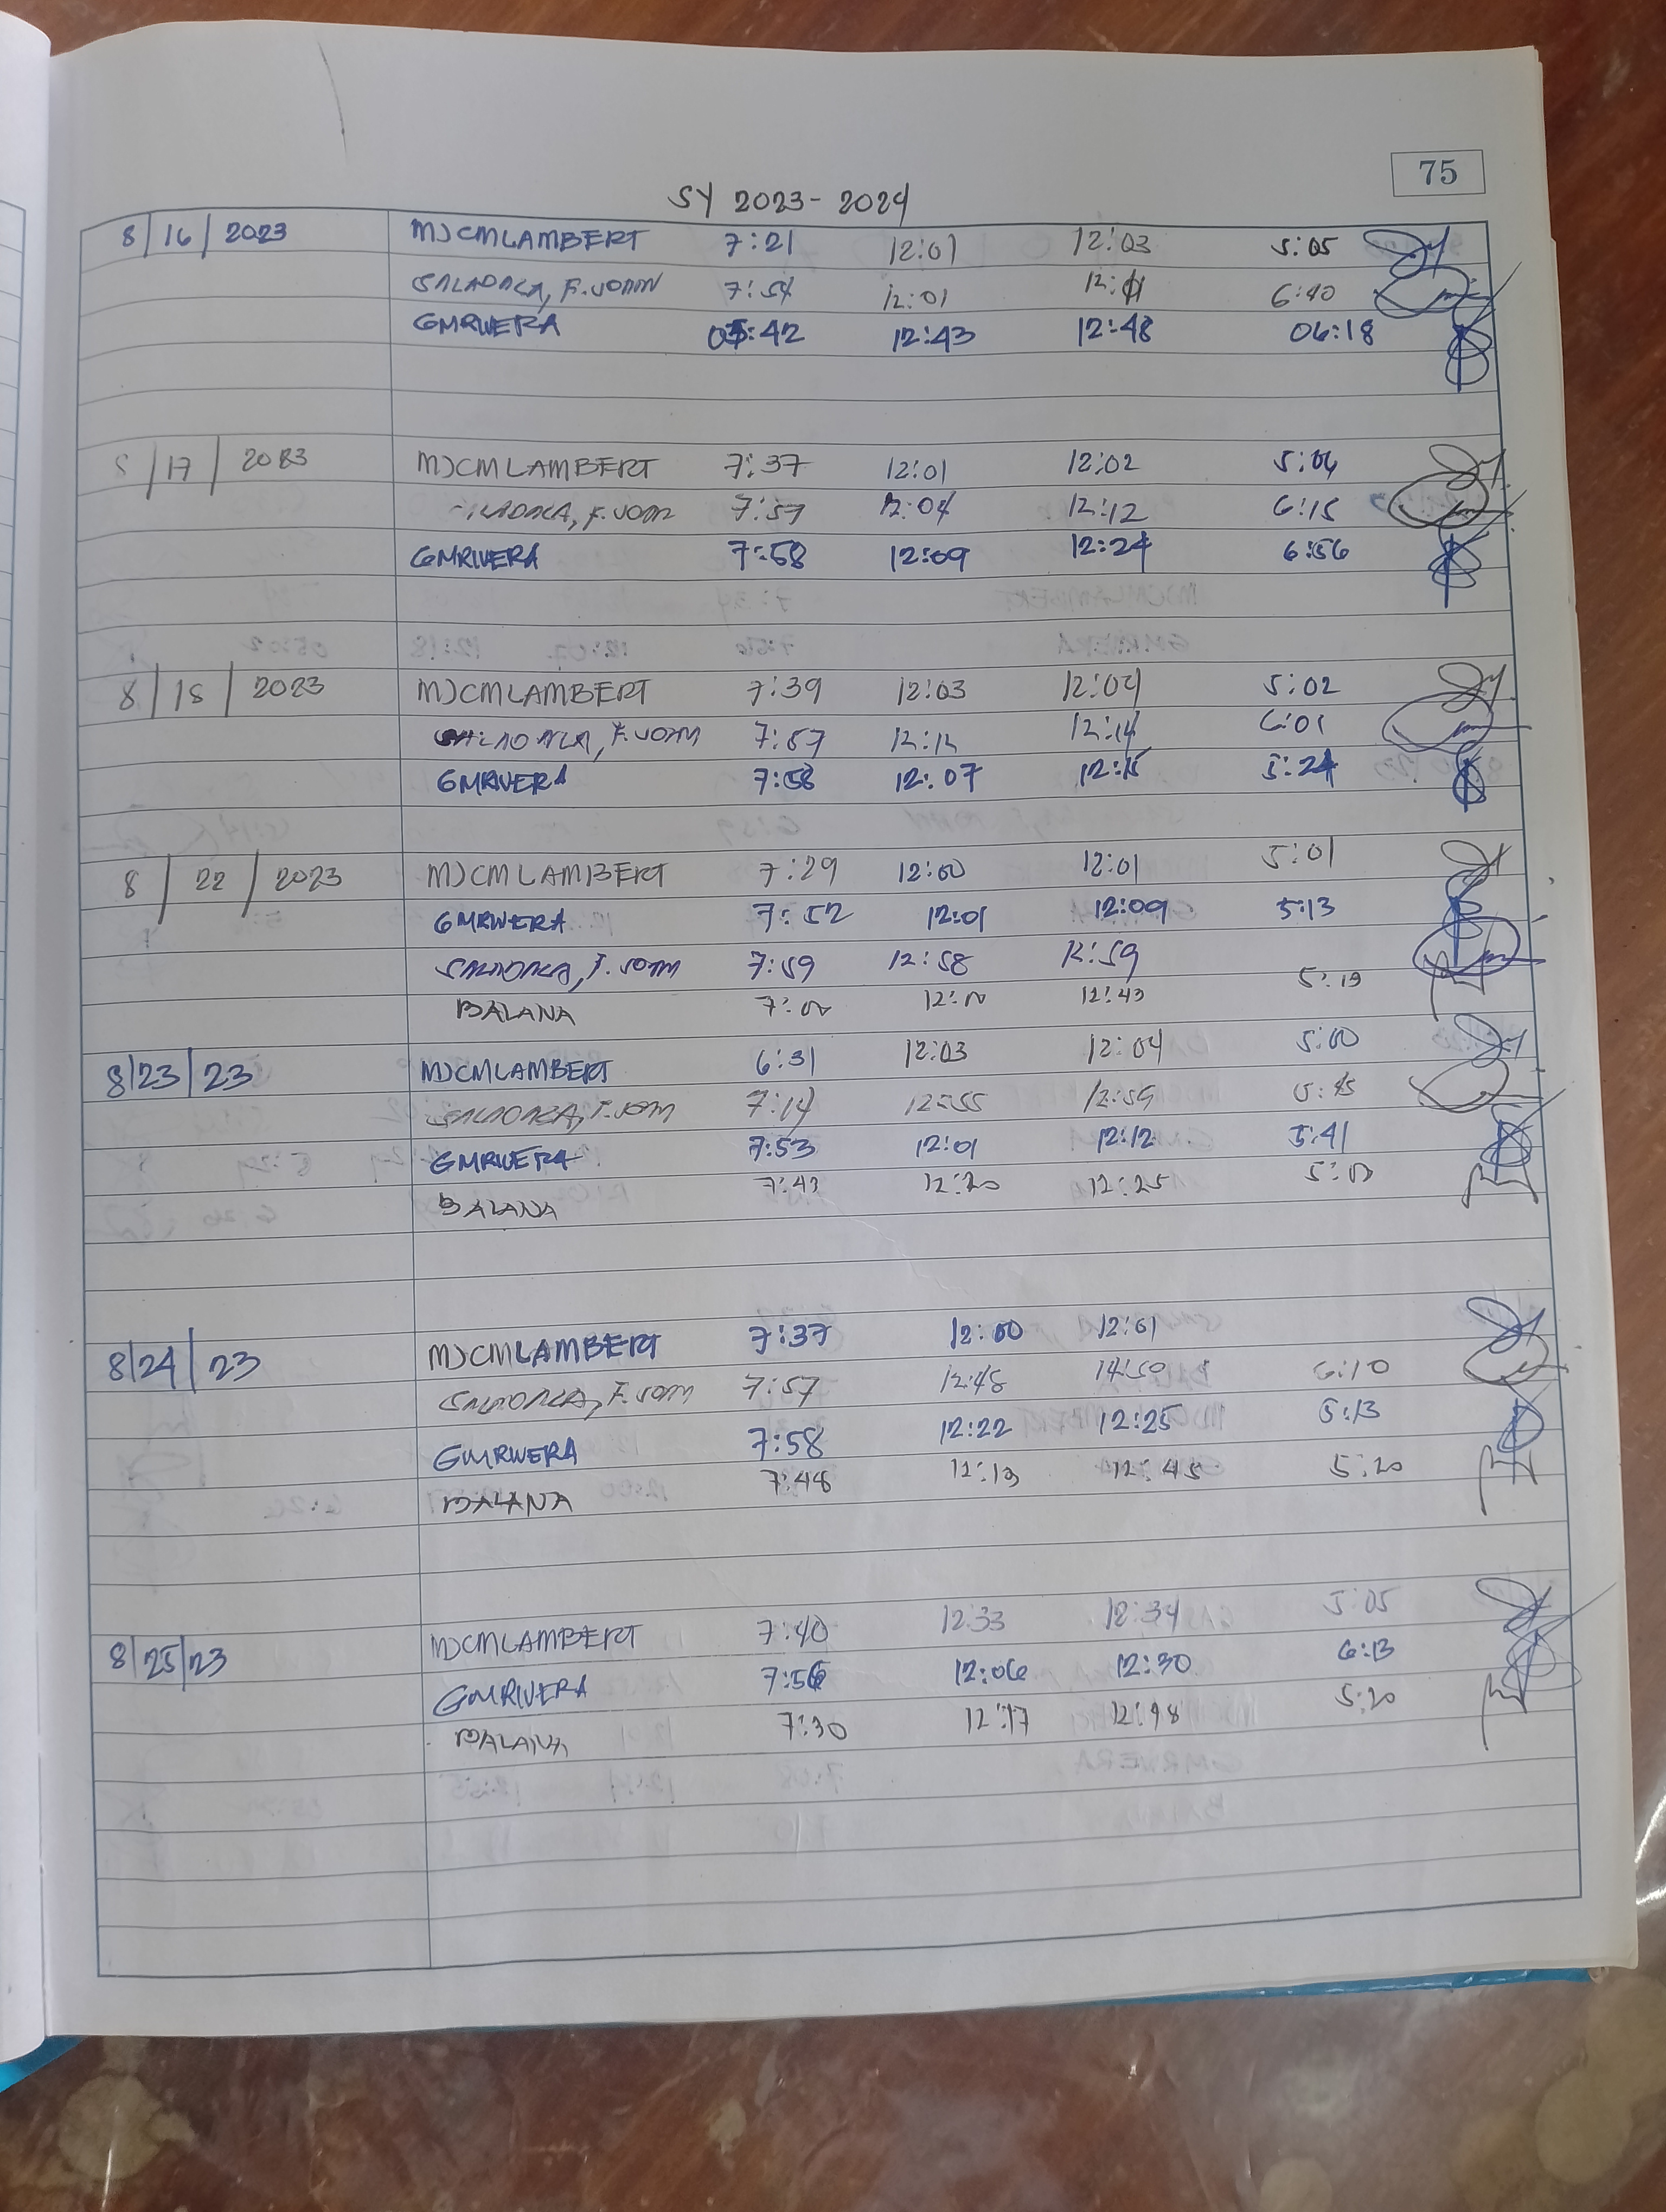 75
SY 2023-2024
8/16/2023 MJCMLAMBERT 7:21 12:01 12:03 5:05
7:54 12:01 6:40
GMRIVERA 12:43 12:48 06:18
8/17/2023 MJCMLAMBERT 7:37 12:01 12:02 5:06
7:57 12:04 12:12 6:15
GMRIVERA 7:58 12:09 12:24 6:56
8/18/2023 MJCMLAMBERT 7:39 12:03 12:04 5:02
7:57 12:12 12:14 6:01
GMRIVERA 7:58 12:07 12:15 5:24
8/22/2023 MJCMLAMBERT 7:29 12:00 12:01 5:01
GMRIVERA 7:52 12:01 12:09 5:13
7:59 12:58 12:59
BALANA 12:43 5:19
8/23/23 MJCMLAMBERT 6:31 12:03 12:04 5:00
7:14 12:55 12:59
GMRIVERA 7:53 12:01 12:12 5:41
BALANA 7:43 12:20 12:25
8/24/23 MJCMLAMBERT 7:37 12:00 12:01
7:57 12:48 6:10
GMRIVERA 7:58 12:22 12:25 5:13
BALANA 7:48 12:13 12:45 5:20
8/25/23 MJCMLAMBERT 7:40 12:33 12:34 5:05
GMRIVERA 7:56 12:06 12:30 6:13
BALANA 7:30 12:17 5:20